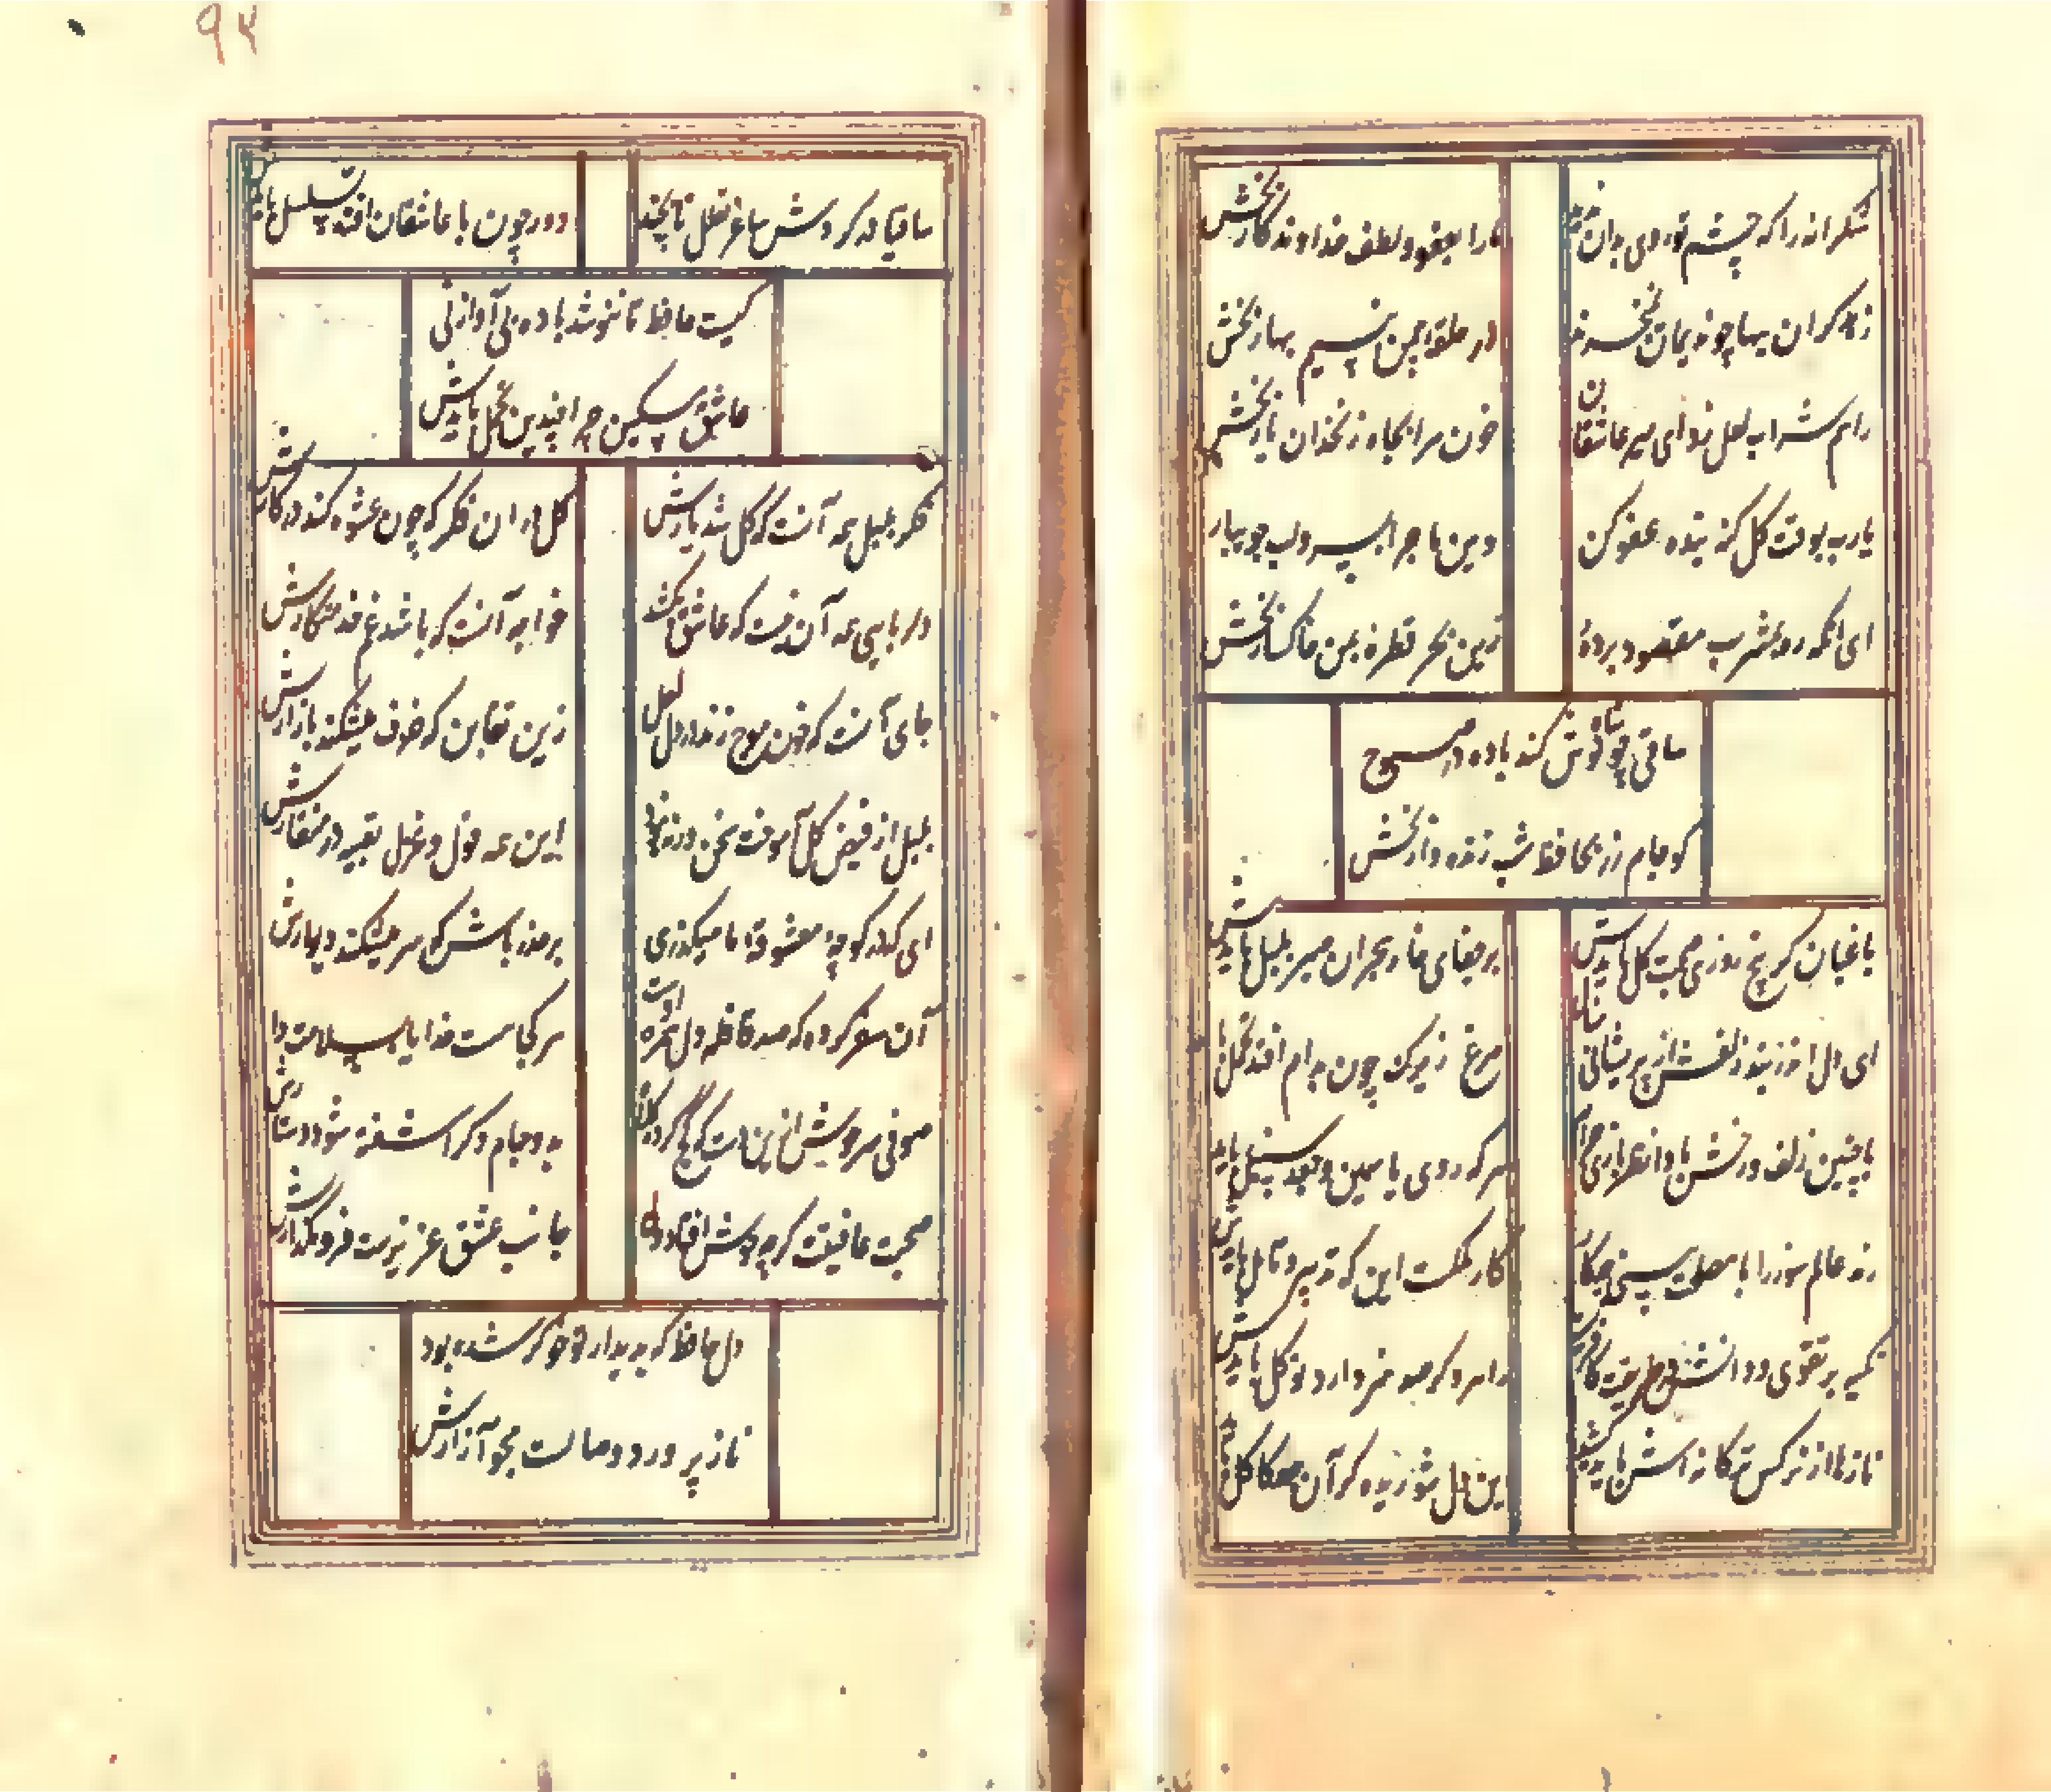 شکرانه را که چشم تو روی بدان ندید
ما را بعفو و لطف خداوندکار بخش
زهد گران بها چو ندیمان نمیخرند
در حلقه چمن بنسیم بهار بخش
راهم شراب لعل زد ای میر عاشقان
خون مرا بچاه زنخدان یار بخش
یارب بوقت گل گنه بنده عفو کن
وین ماجرا بسرو لب جویبار
ای انکه ره بمشرب مقصود بردهٔ
زین بحر قطره بمن خاکسار بخش
ساقی چو شاه نوش کند باده صبوح
کو جام زر بحافظ شب زنده دار بخش
باغبان گر پنج روزی صحبت گل بایدش
بر جفای خار هجران صبر بلبل بایدش
ای دل اندر بند زلفش از پریشانی منال
مرغ زیرک چون بدام افتد تحمل بایدش
با چنین زلف و رخش بادا نظر بازی حرام
هر که روی یاسمین و جعد سنبل بایدش
رند عالم سوز را با مصلحت بینی چکار
کار ملکست این که تدبیر و تامل بایدش
تکیه بر تقوی و دانش در طریقت کافریست
راهرو گر صد هنر دارد توکل بایدش
نازها از نرکس ترکانه اش باید کشید
این دل شوریده گر آن جعد کاکل بایدش
۹۴
ساقیا در گردش ساغر تعلل تا بچند
دور چون با عاشقان افتد تسلسل بایدش
کیست حافظ تا ننوشد باده بی آواز نی
عاشق مسکین چرا چندین تحمل بایدش
فکر بلبل همه آنست که گل شد یارش
گل در ان فکر که چون عشوه کند در کارش
دلربایی همه آن نیست که عاشق بکشند
خواجه آنست که باشد غم خدمتکارش
جای آنست که خون موج زند در دل لعل
زین تغابن که خزف میشکند بازارش
بلبل از فیض گل آموخت سخن ورنه نبود
این همه قول و غزل تعبیه در منقارش
ای که در کوچه معشوقهٔ ما میگذری
بر حذر باش که سر میشکند دیوارش
آن سفر کرده که صد قافله دل همره اوست
هر کجاست خدایا بسلامت دارش
صوفی سرخوش ازین دست که کج کرد کلاه
بدو جام دگر آشفته شود دستارش
صحبت عافیتت گرچه خوش افتاد دلا
جانب عشق عزیزست فرو مگذارش
دل حافظ که بدیدار تو خوگر شده بود
ناز پرورد وصالست مجو آزارش